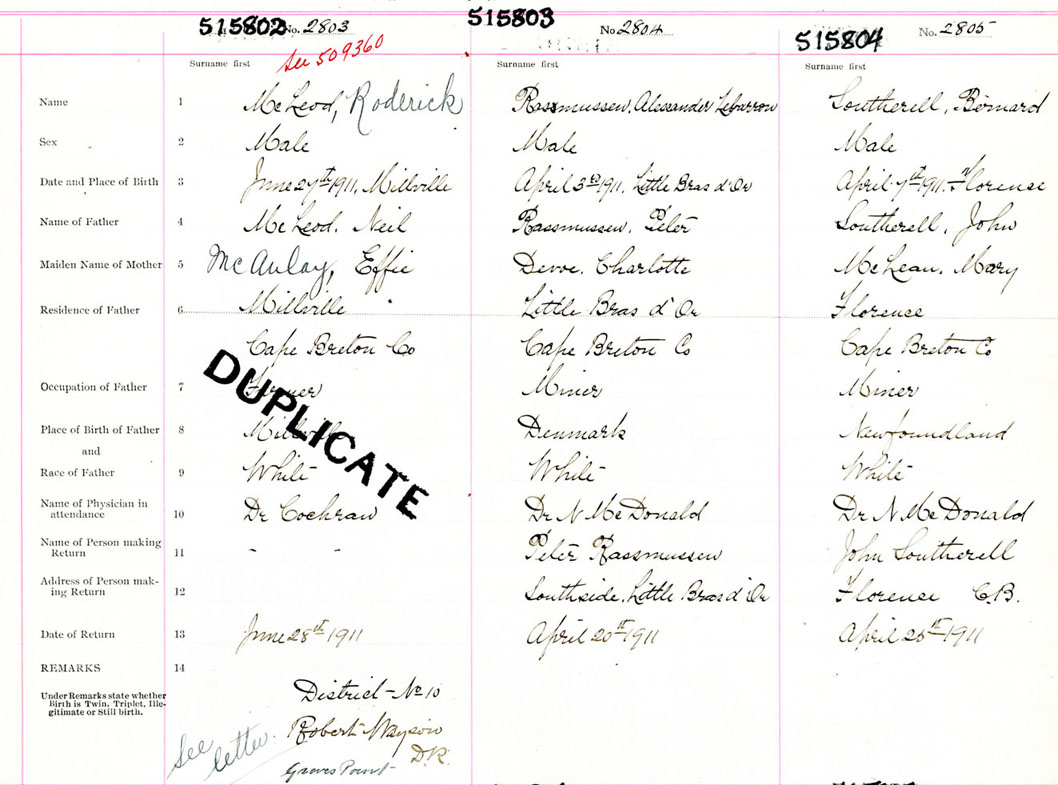 515802 No. 2803 515803 No. 2804 515804 No. 2805
See 509360
Surname first Surname first Surname first
Name 1 McLeod, Roderick Rasmussen, Alexander Lebarron Southerell, Bernard
Sex 2 Male Male Male
Date and Place of Birth 3 June 27th 1911, Millville April 3rd 1911, Little Bras d'Or April 7th 1911. Florence
Name of Father 4 McLeod, Neil Rassmussen, Peter Southerell, John
Maiden Name of Mother 5 McAulay, Effie Devoe, Charlotte McLean, Mary
Residence of Father 6 Millville Little Bras d'Or Florence
Cape Breton Co Cape Breton Co Cape Breton Co
Occupation of Father 7 Farmer Miner Miner
DUPLICATE
Place of Birth of Father 8 Millville Denmark Newfoundland
and
Race of Father 9 White White White
Name of Physician in
attendance 10 Dr Cochran Dr N McDonald Dr N. McDonald
Name of Person making
Return 11 - - Peter Rassmussen John Southerell
Address of Person mak-
ing Return 12 Southside, Little Bras d'Or Florence C.B.
Date of Return 13 June 28th 1911 April 20th 1911 April 26th 1911
REMARKS 14
Under Remarks state whether
Birth is Twin, Triplet, Ille-
gitimate or Still birth.
District No 10
Robert Mayson
D.R.
Groves Point
See
letter.